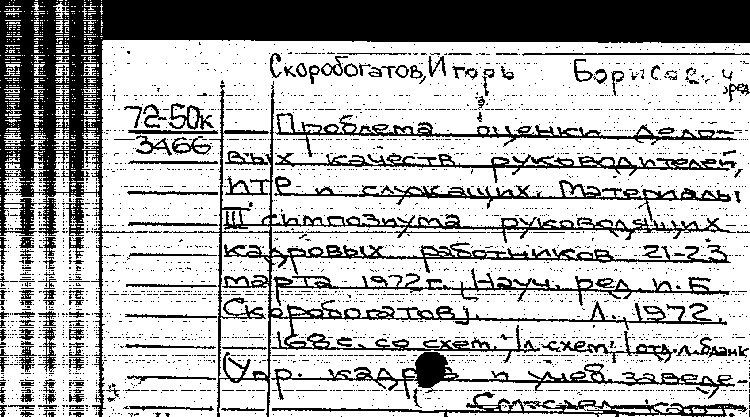 Скоробогатов, Игорь Борисов. ч
ред
72-50к
3466
Проблема оценки дело-
вых качеств руководителей,
ИТР и служащих. Материалы
III симпозиума руководящих
кадровых работников 21-23
марта 1972г. [Науч. ред. И.Б
Скоробогатов]. Л., 1972.
168 с. со схем.; 1 л. схем; 1 отд. л. бланк
(Упр. кадров и учеб. заведе-
См. след. карт